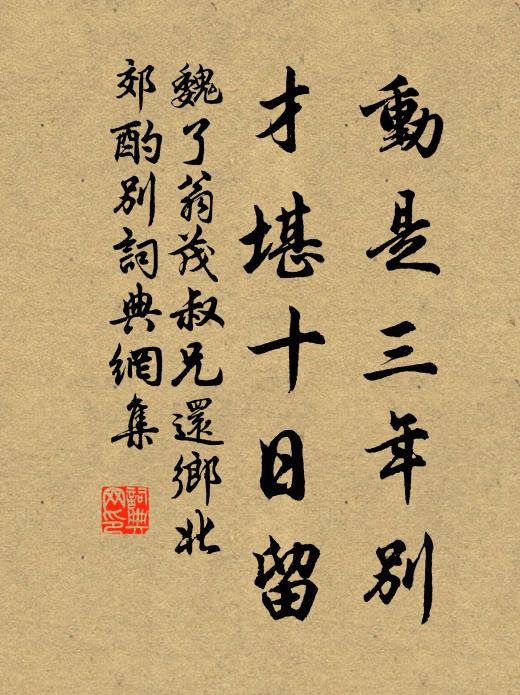 動是三年別
才堪十日留
魏了翁茂叔兄還鄉北
郊酌別詞典網集
詞典
网印